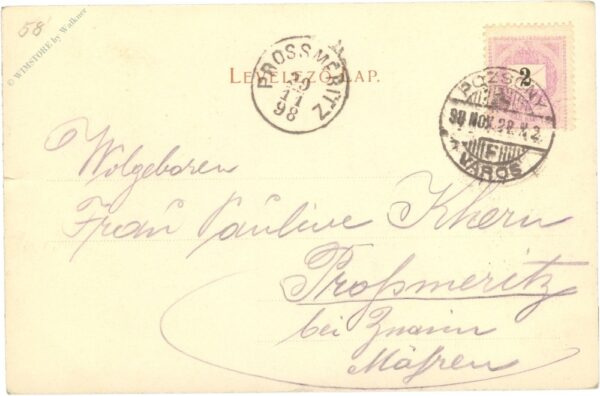 58
© WIMSTORE by Walkner
LEVELEZŐ-LAP.
PROSSMERITZ
11
98
2
POZSONY
98 NOV. 28.
VÁROS
Wolgeboren
Frau Pauline Khern
Proßmeritz
bei Znaim
Mähren